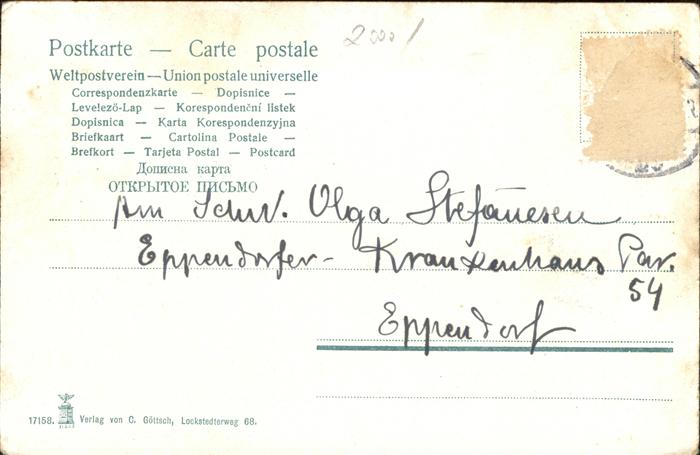 Postkarte — Carte postale
Weltpostverein — Union postale universelle
Correspondenzkarte — Dopisnice —
Levelező-Lap — Korespondenční listek
Dopisnica — Karta Korespondenzyjna
Briefkaart — Cartolina Postale —
Brefkort — Tarjeta Postal — Postcard
Дописна карта
ОТКРЫТОЕ ПИСЬМО
Schw. Olga Stefānesen
Eppendorfer- Krankenhaus Pav.
54
Eppendorf
17158. Verlag von C. Göttsch, Lockstedterweg 68.